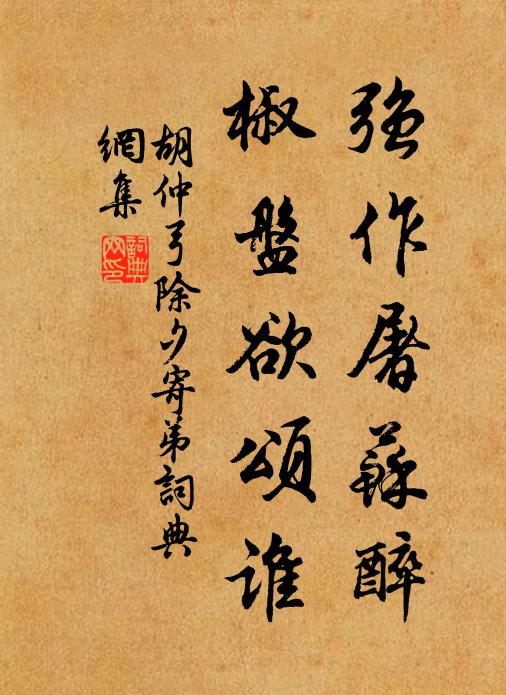 強作屠蘇醉
椒盤欲頌誰
胡仲弓除夕寄弟詞典
網集
詞典网印